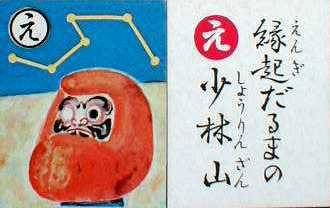 え
え
縁起だるまの
えんぎ
少林山
しょうりんざん